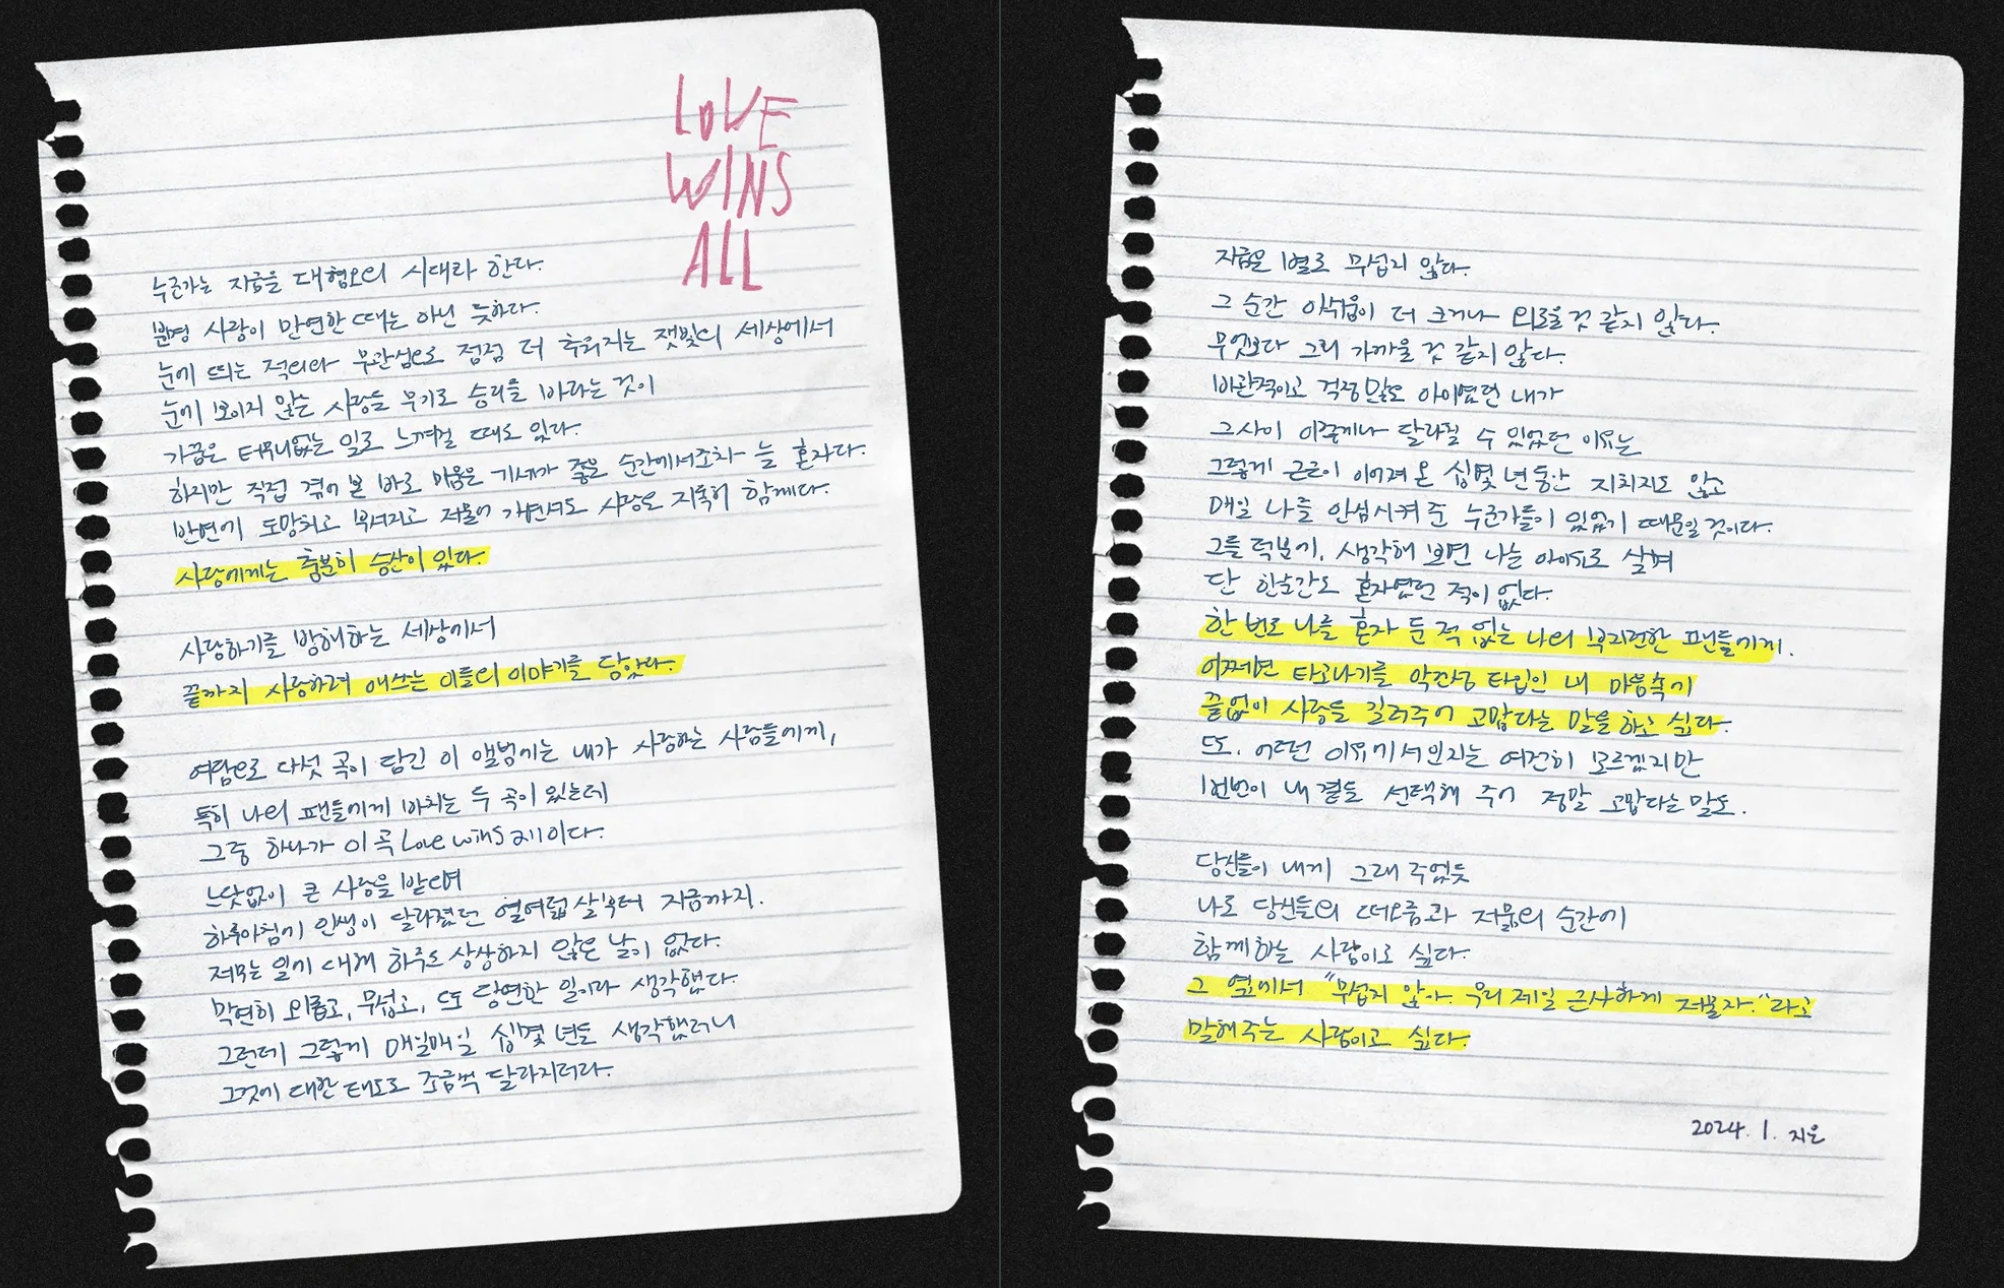 LOVE
WINS
ALL
누군가는 지금을 대혐오의 시대라 한다.
분명 사랑이 만연한 때는 아닌 듯하다.
눈에 띄는 적의와 무관심으로 점점 더 추워지는 잿빛의 세상에서
눈에 보이지 않는 사랑을 무기로 승리를 바라는 것이
가끔은 터무니없는 일로 느껴질 때도 있다.
하지만 직접 겪어 본 바로 미움은 기세가 좋은 순간에서조차 늘 혼자다.
반면에 도망치고 부서지고 저물어 가면서도 사랑은 지독히 함께다.
사랑에게는 충분히 승산이 있다.
사랑하기를 방해하는 세상에서
끝까지 사랑하려 애쓰는 이들의 이야기를 담았다.
여담으로 다섯 곡이 담긴 이 앨범에는 내가 사랑하는 사람들에게,
특히 나의 팬들에게 바치는 두 곡이 있는데
그중 하나가 이 곡 Love wins all이다.
느닷없이 큰 사랑을 받으며
하루아침에 인생이 달라졌던 열여덟 살부터 지금까지.
저무는 일에 대해 하루도 상상하지 않은 날이 없다.
막연히 외롭고, 무섭고, 또 당연한 일이라 생각했다.
그런데 그렇게 매일매일 십몇 년을 생각했더니
그것에 대한 태도도 조금씩 달라지더라.
지금은 별로 무섭지 않다.
그 순간 아쉬움이 더 크거나 외로울 것 같지 않다.
무엇보다 그리 가까울 것 같지 않다.
비관적이고 걱정 많은 아이였던 내가
그사이 이렇게나 달라질 수 있었던 이유는
그렇게 근근이 이어져 온 십몇 년 동안 지치지도 않고
매일 나를 안심시켜 준 누군가들이 있었기 때문일 것이다.
그들 덕분에, 생각해 보면 나는 아이유로 살며
단 한순간도 혼자였던 적이 없다.
한 번도 나를 혼자 둔 적 없는 나의 부지런한 팬들에게.
어쩌면 타고나기를 악건성 타입인 내 마음속에
끝없이 사랑을 길러주어 고맙다는 말을 하고 싶다.
또, 어떤 이유에서인지는 여전히 모르겠지만
1번번이 내 곁을 선택해 주어 정말 고맙다는 말도.
당신들이 내게 그래 주었듯
나도 당신들의 떠오름과 저묾의 순간에
함께하는 사람이고 싶다.
그 옆에서 "무섭지 않아. 우리 제일 근사하게 저물자." 라고
말해주는 사람이고 싶다.
2024. 1. 지은